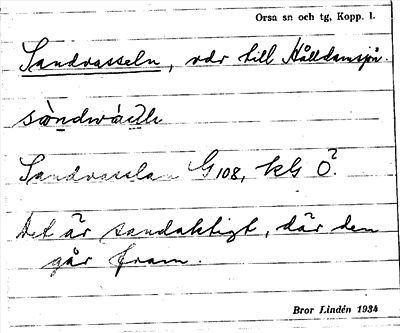 Orsa sn och tg, Kopp. l.
Sandvasseln, vdr till Hålldamsjön.
Sandvasslan G108, kbl Ö?
Det är sandaktigt, där den
går fram.
Bror Lindén 1934